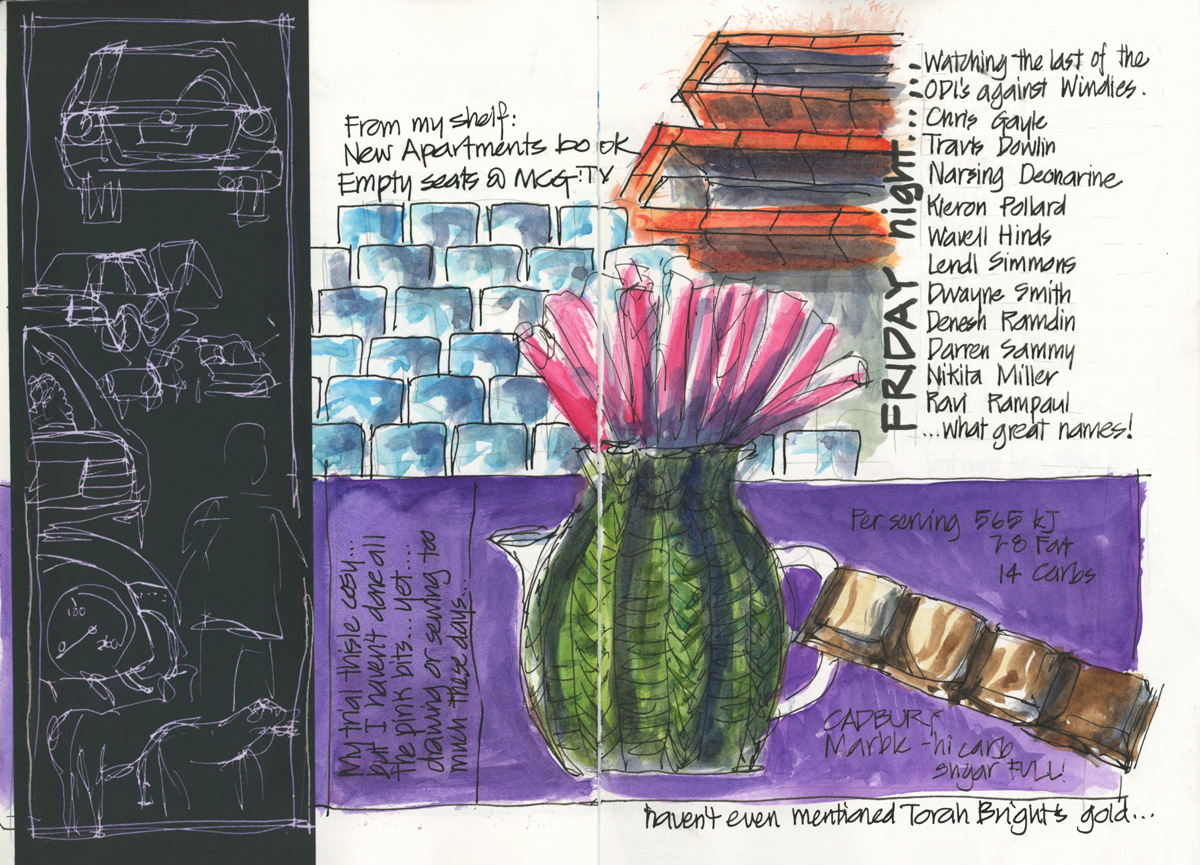 From my shelf:
New Apartments book
Empty seats @ MCG TV
FRIDAY night......
Watching the last of the
ODI's against Windies.
Chris Gayle
Travis Dowlin
Narsing Deonarine
Kieron Pollard
Wavell Hinds
Lendl Simmons
Dwayne Smith
Denesh Ramdin
Darren Sammy
Nikita Miller
Ravi Rampaul
...what great names!
My trial thistle cosy...
but I haven't done all
the pink bits... yet....
drawing or sewing too
much these days...
Per serving 565 kJ
7.8 Fat
14 Carbs
CADBURY
Marble - hi carb
sugar FULL!
haven't even mentioned Torah Bright's gold...
100
0
200